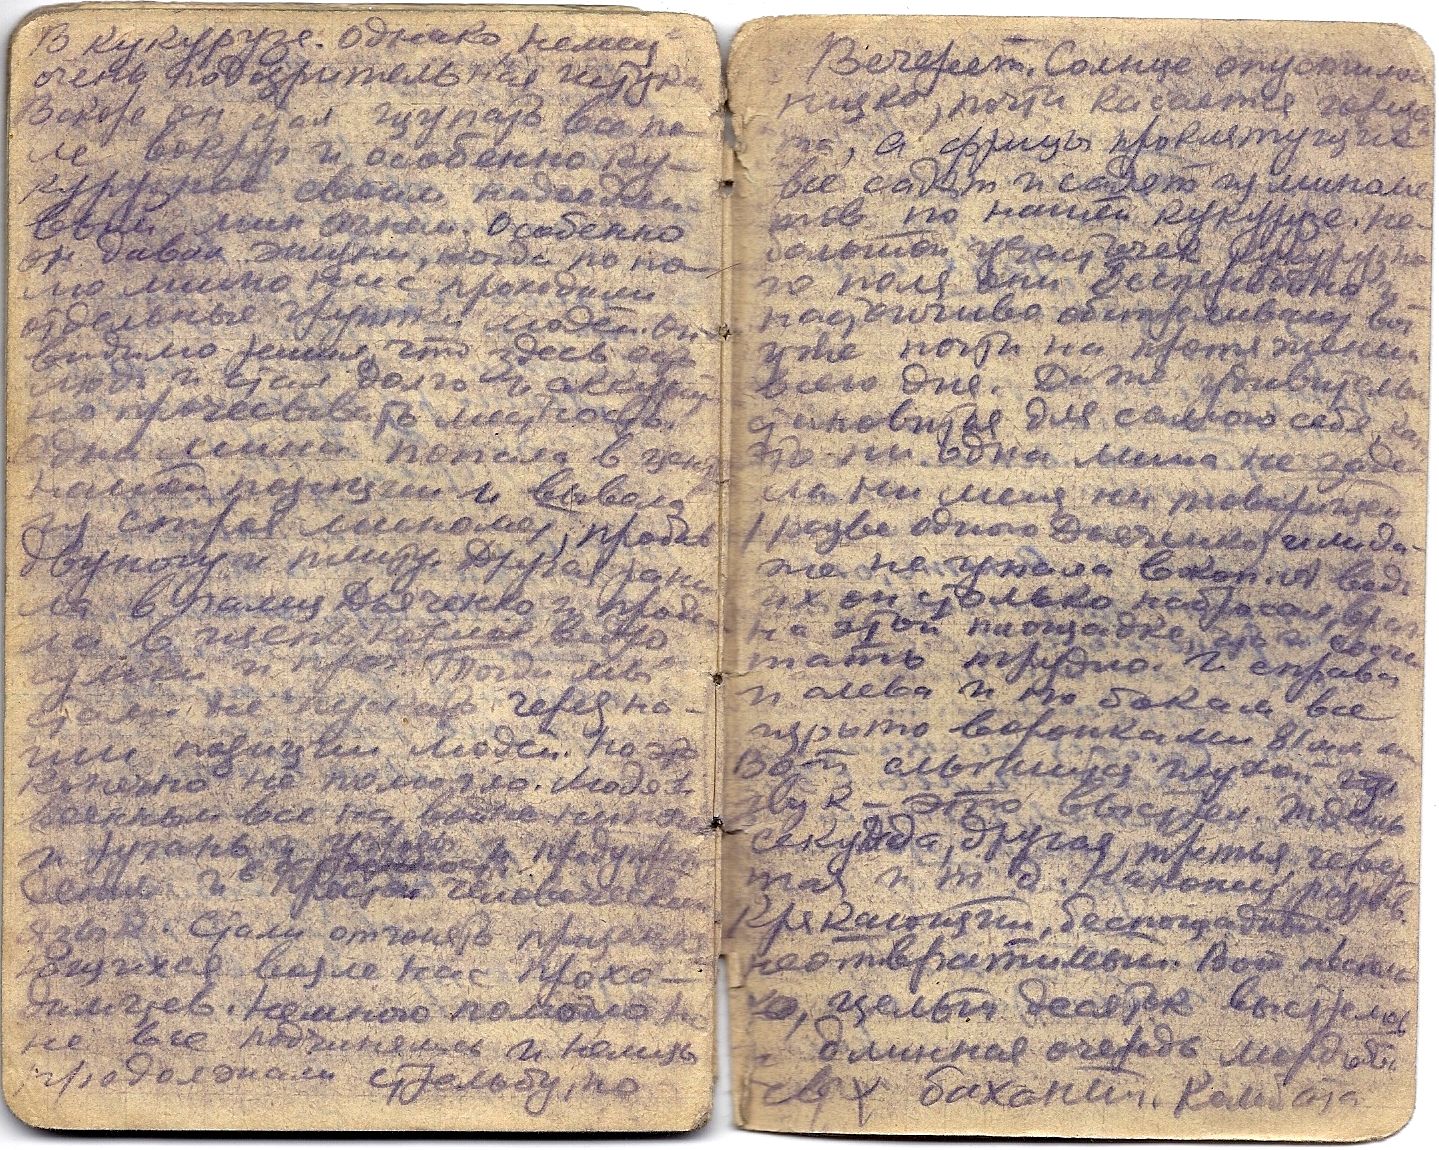 в кукурузе. Однако, немец
очень подозрительная штука
Вскоре он стал щупать все по-
ле вокруг и особенно ку-
курузное своим надоедли-
вым мин огнем. Особенно
он давал жизни, когда по по-
лю мимо нас проходили
отдельные группы людей. Он
видимо решил, что здесь есть
люди и стал долго и аккурат
но прочесывать местность.
Одна мина попала в центр
нашей позиции и вывела
из строя миномет, пробив
двуногу и плиту. Другая рани-
ла в палец Дьяченко и
ла в щепь ведро
и проч. Тогда мы
стали не пускать через на-
ши позиции людей. Но это
конечно не помогло. Людям
военным все на войне нипочем
и ругань и угрозы и
и простой человеческий
язык. Стали отгонять
возле нас прохо-
димцев. Немного помогло но
не все подчинялись и немцы
продолжали стрельбу, но
Вечереет. Солнце опустилось
низко, почти касается горизон
та, а фрицы проклятущие
все садят и садят из миноме
тов по нашей кукурузе. Не-
большой участочек кукурузно
го поля они беспрерывно и
настойчиво обстреливают вот
уже почти на протяжении
всего дня. Даже удивительно
становится для самого себя, как
это ни одна мина не заде
ла ни меня ни товарищей
(разве одного Дьяченко) и
же не упала в окоп. А ведь
их он столько набросал, враг
на этой площадке, что и сосчи
тать трудно. И справа
и слева и по бокам все
изрыто воронками
Вот слышится глухой
звук – это выстрел. Ждешь
секунда, другая, третья, четвер
тая и т д. Наконец, разрыв.
Крякающий, беспощадный,
неотвратимый. Вот несколь
ко, целый десяток выстрелов
и длинная очередь
баханий. Комбата